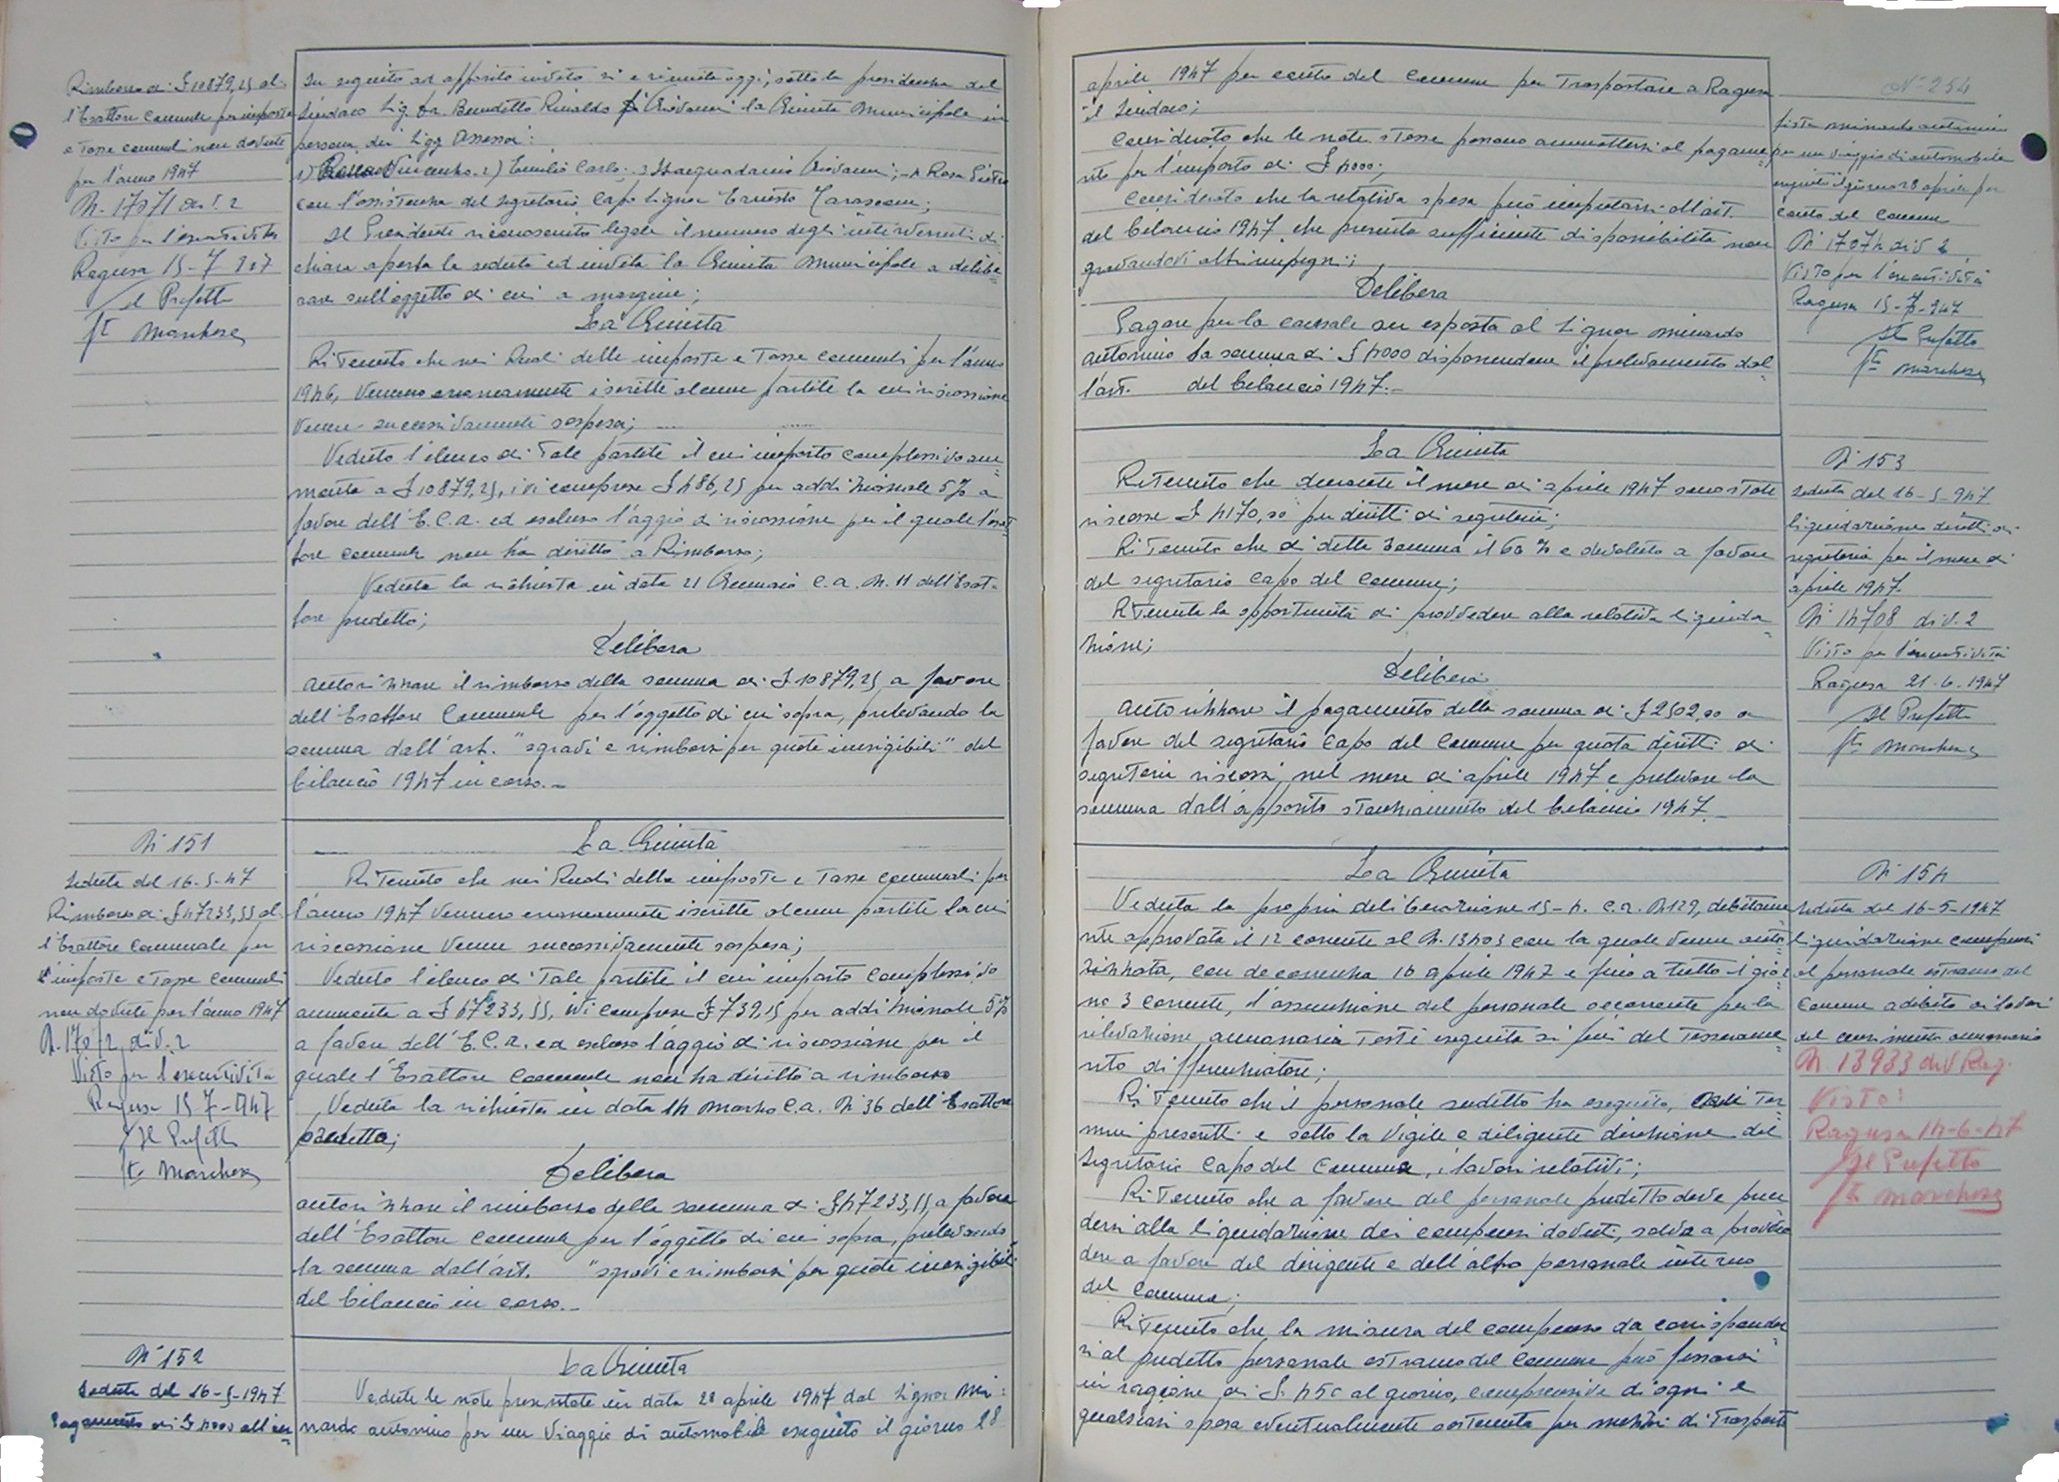 Rimborso di £ 10879,25 al-
l'Esattore Comunale per imposte
e Tasse comunali non dovute
per l'anno 1947
N. 17071 div. 2
Visto per l'esecutività
Ragusa 15-7-947
Il Prefetto
Ft Marchese
In seguito ad apposito invito si è riunita oggi, sotto la presidenza del
Sindaco Sig. Benedetto Rinaldo fu Giovanni la Giunta Municipale in
persona dei Sigg Assessori:
1) Vincenzo 2) Emilio Carlo; 3 Giovanni; 4 Rosa Pietro
con l'assistenza del segretario Capo Signor Ernesto
Il Presidente riconosciuto legale il numero degli intervenuti di-
chiara aperta la seduta ed invita la Giunta Municipale a delibe
rare sull'oggetto di cui a margine;
La Giunta
Ritenuto che nei Ruoli delle imposte e Tasse comunali per l'anno
1946, vennero erroneamente iscritte alcune partite la cui riscossione
venne successivamente sospesa;
Veduto l'elenco di tale partite il cui importo complessivo am-
monta a £ 10879,25, ivi comprese £ 486,25 per addizionale 5% a
favore dell'E.C.A. ed escluso l'aggio di riscossione per il quale l'esat
tore comunale non ha diritto a Rimborso;
Veduta la richiesta in data 21 Gennaio c.a. N. 11 dell'Esat-
tore predetto;
Delibera
autorizzare il rimborso della somma di £ 10879,25 a favore
dell'Esattore Comunale per l'oggetto di cui sopra, prelevando la
somma dall'art. "sgravi e rimborsi per quote inesigibili" del
bilancio 1947 in corso.-
N° 151
Seduta del 16-5-47
Rimborso di £ 47233,55 al-
l'Esattore Comunale per
imposte e Tasse comunali
non dovute per l'anno 1947
N. 17072 div. 2
Visto per l'esecutività
Ragusa 15-7-947
Il Prefetto
Ft. Marchese
La Giunta
Ritenuto che nei Ruoli delle imposte e Tasse comunali per
l'anno 1947 vennero erroneamente iscritte alcune partite la cui
riscossione venne successivamente sospesa;
Veduto l'elenco di tale partite il cui importo complessivo
ammonta a £ 47233,55, ivi comprese £ 739,15 per addizionale 5%
a favore dell'E.C.A. ed escluso l'aggio di riscossione per il
quale l'Esattore Comunale non ha diritto a rimborso
Veduta la richiesta in data 14 marzo c.a. N° 36 dell'Esattore
predetto;
Delibera
autorizzare il rimborso della somma di £ 47233,55 a favore
dell'Esattore comunale per l'oggetto di cui sopra, prelevando
la somma dall'art. "sgravi e rimborsi per quote inesigibili
del bilancio in corso.-
N° 152
Seduta del 16-5-1947
Pagamento di £ 4000 all'au-
La Giunta
Vedute le note presentate in data 28 aprile 1947 dal Signor Mi-
nardo antonino per un viaggio di automobile eseguito il giorno 28
N° 254
aprile 1947 per conto del comune per Trasportare a Ragusa
il Sindaco;
Considerato che le note stesse possono ammettersi al pagame-
nto per l'importo di £ 4000;
Considerato che la relativa spesa può imputarsi all'art.
del bilancio 1947 che presenta sufficiente disponibilità non
gravandovi altri impegni;
Delibera
Pagare per la causale su esposta al Signor minardo
antonino la somma di £ 4000 disponendone il prelevamento dal-
l'art. del bilancio 1947.-
tista minardo antonino
per un viaggio di automobile
eseguito il giorno 28 aprile per
conto del comune
N° 17074 div 2
Visto per l'esecutività
Ragusa 15-7-947
Il Prefetto
Ft marchese
La Giunta
Ritenuto che durante il mese di aprile 1947 sono state
riscosse £ 4170,00 per diritti di segreteria;
Ritenuto che di detta somma il 60% è devoluto a favore
del segretario Capo del Comune;
Ritenuta la opportunità di provvedere alla relativa liquida-
zione;
Delibera
autorizzare il pagamento della somma di £ 2502,00 a
favore del segretario Capo del Comune per quota diritti di
segreteria riscossi nel mese di aprile 1947 e prelevare la
somma dall'apposito stanziamento del bilancio 1947.-
N° 153
Seduta del 16-5-947
liquidazione diritti di
segreteria per il mese di
aprile 1947.
N° 14708 div. 2
Visto per l'esecutività
Ragusa 21-6-1947
Il Prefetto
Ft. Marchese
La Giunta
Veduta la propria deliberazione 15-4. c.a. N 129, debitame-
nte approvata il 12 corrente al N. 13403 con la quale venne auto-
rizzata, con decorrenza 16 aprile 1947 e fino a tutto il gior-
no 3 corrente, l'assunzione del personale occorrente per la
rilevazione annonaria testè eseguita ai fini del tesserame-
nto differenziatore;
Ritenuto che il personale sudetto ha eseguito, nei ter
mini prescritti e sotto la vigile e diligente direzione del
Segretario Capo del Comune, i lavori relativi;
Ritenuto che a favore del personale predetto deve proce
dersi alla liquidazione dei compensi dovuti, salvo a provve-
dere a favore del dirigente e dell'altro personale interno
del Comune;
Ritenuto che la misura del compenso da corrisponder
si al predetto personale estraneo del Comune può fissarsi
in ragione di £. 450 al giorno, comprensive di ogni e
qualsiasi spesa eventualmente sostenuta per mezzi di Trasporto
N° 154
Seduta del 16-5-1947
liquidazione compensi
al personale estraneo del
Comune adibito ai lavori
del censimento annonario
N. 13933 div Rag.
Visto:
Ragusa 14-6-47
Il Prefetto
Ft. Marchese